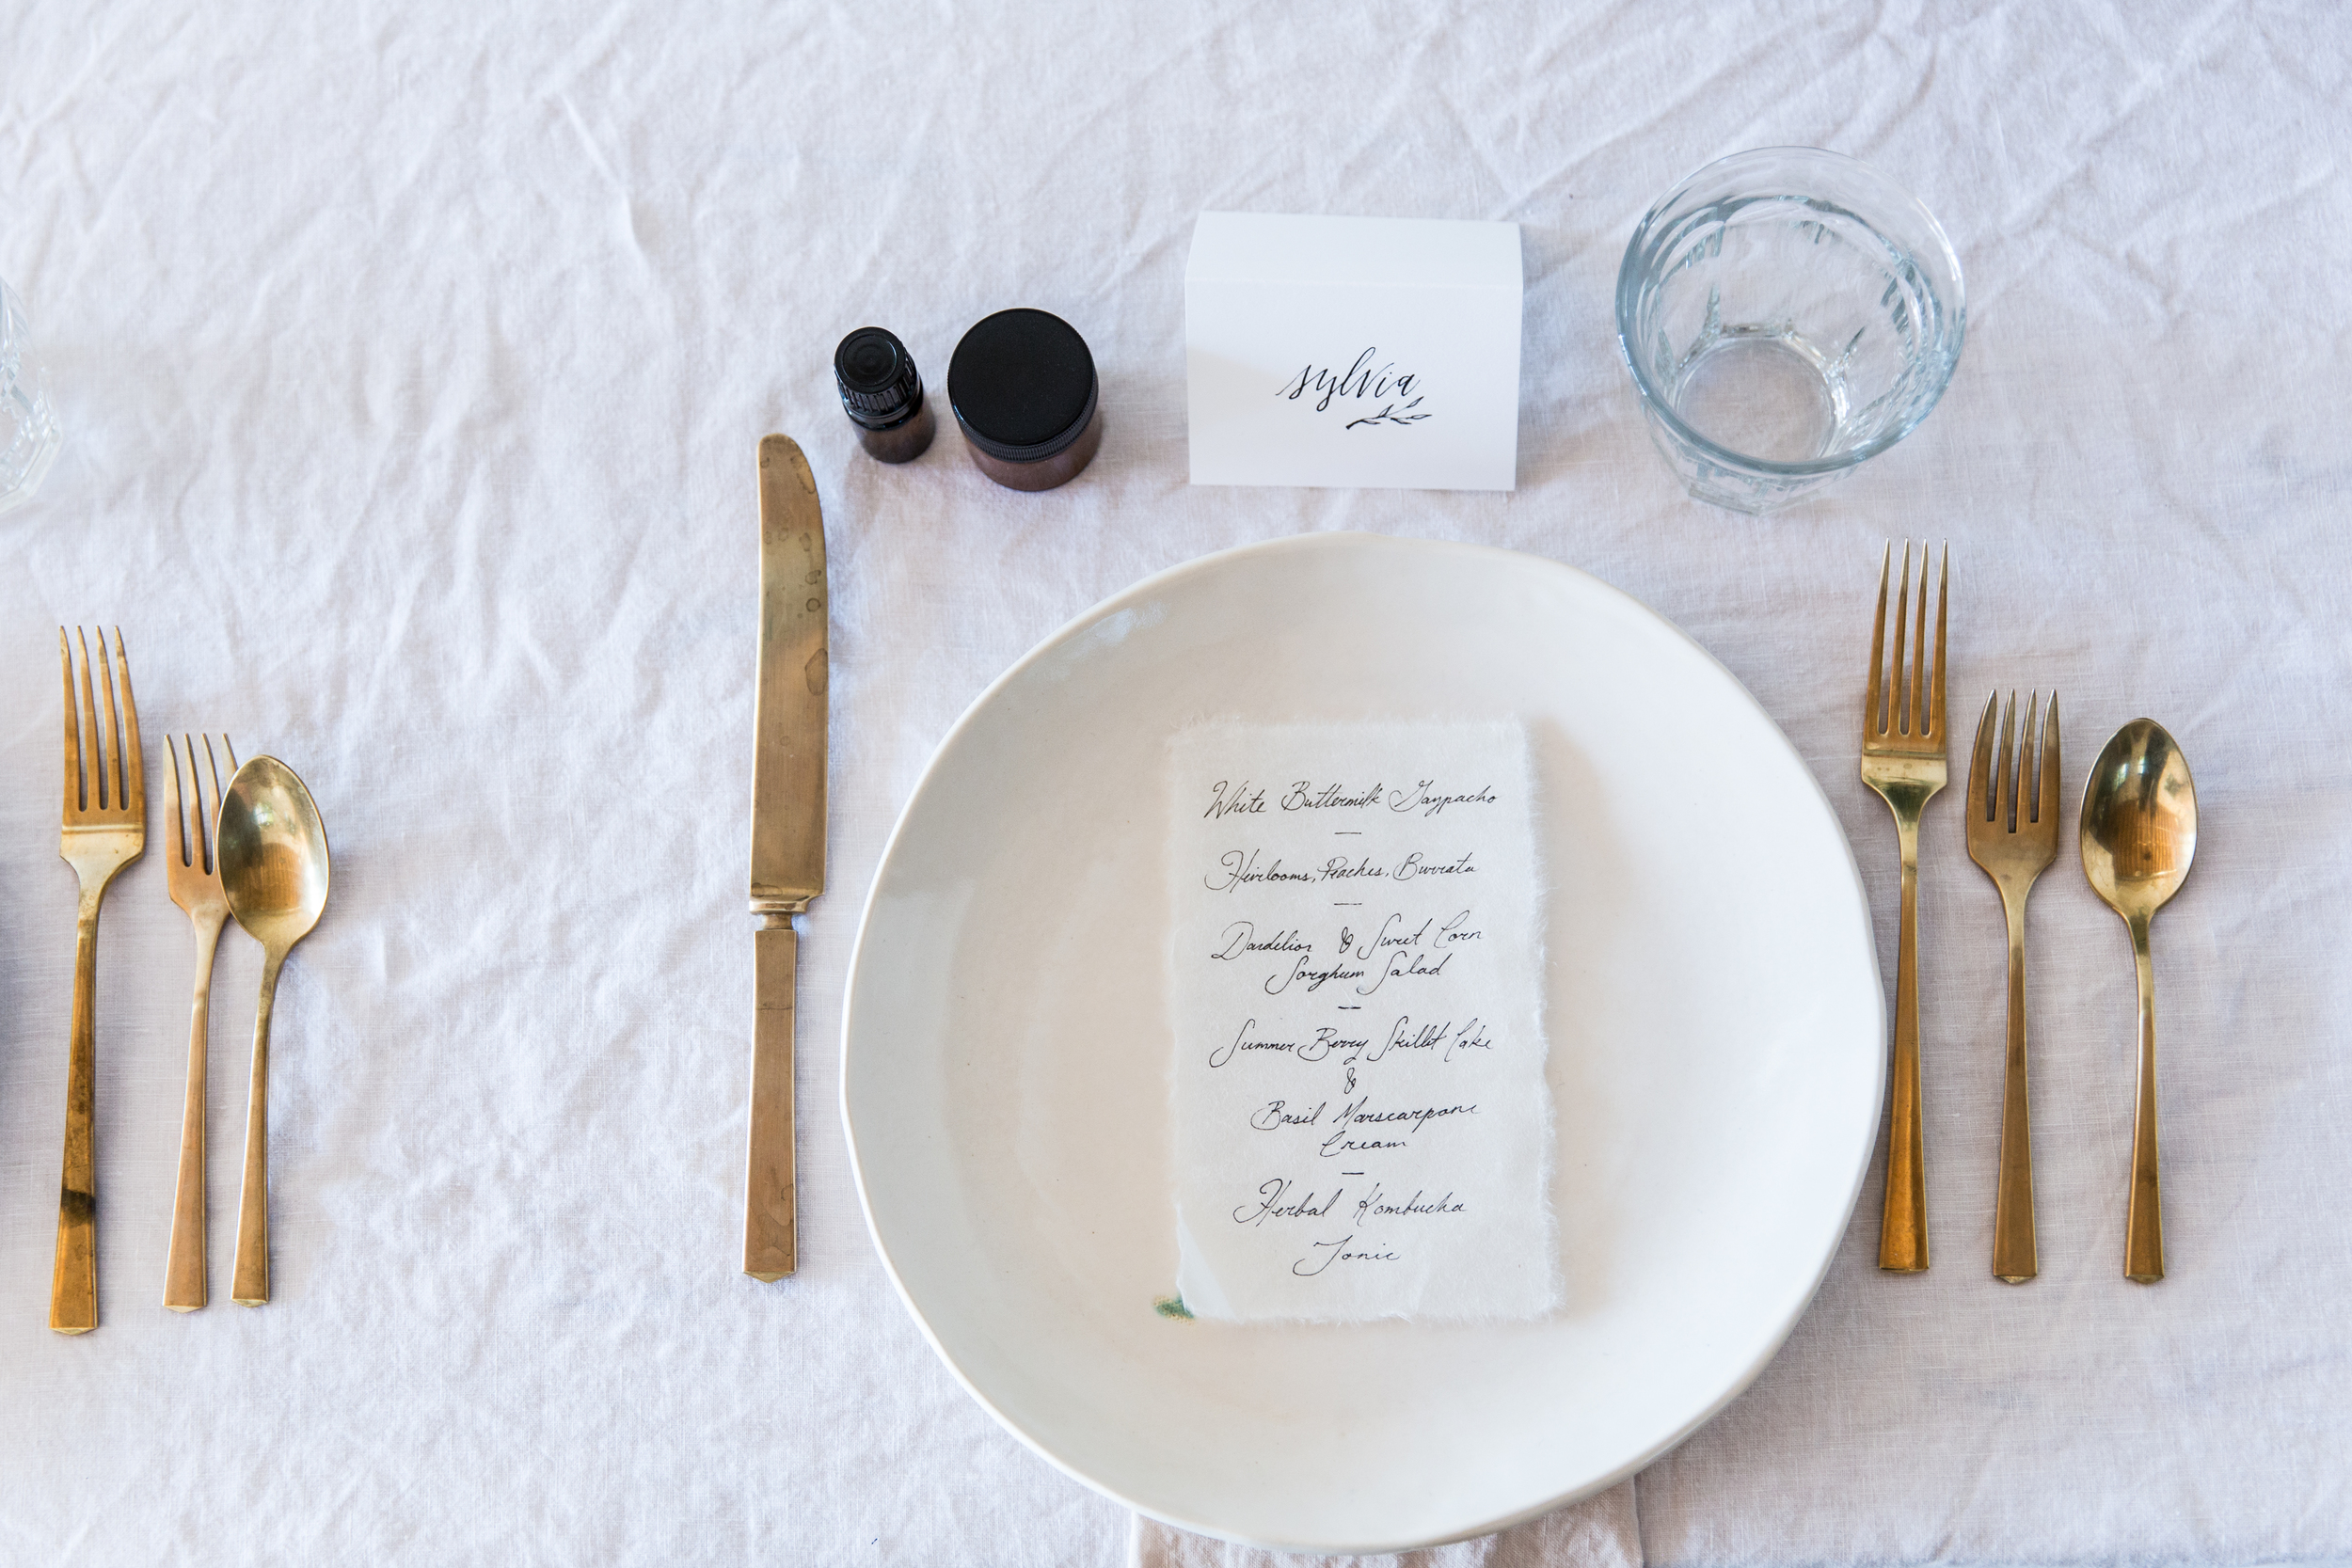 sylvia
White Buttermilk Gazpacho
Heirlooms, Peaches, Burrata
Dandelion & Sweet Corn
Sorghum Salad
Summer Berry Skillet Cake
&
Basil Marscarpone
Cream
Herbal Kombucha
Tonic